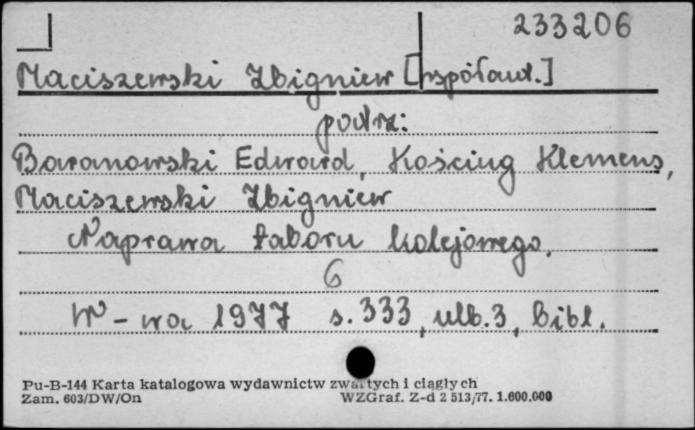 233206
Maciszewski Zbigniew [współaut.]
podrz:
Baranowski Edward, Kościug Klemens,
Maciszewski Zbigniew
Naprawa taboru kolejowego.
6
W-wa 1977 s. 333, ulb. 3, bibl.
Pu-B-144 Karta katalogowa wydawnictw zwartych i ciągłych
Zam. 603/DW/On WZGraf. Z-d 2 513/77. 1.600.000